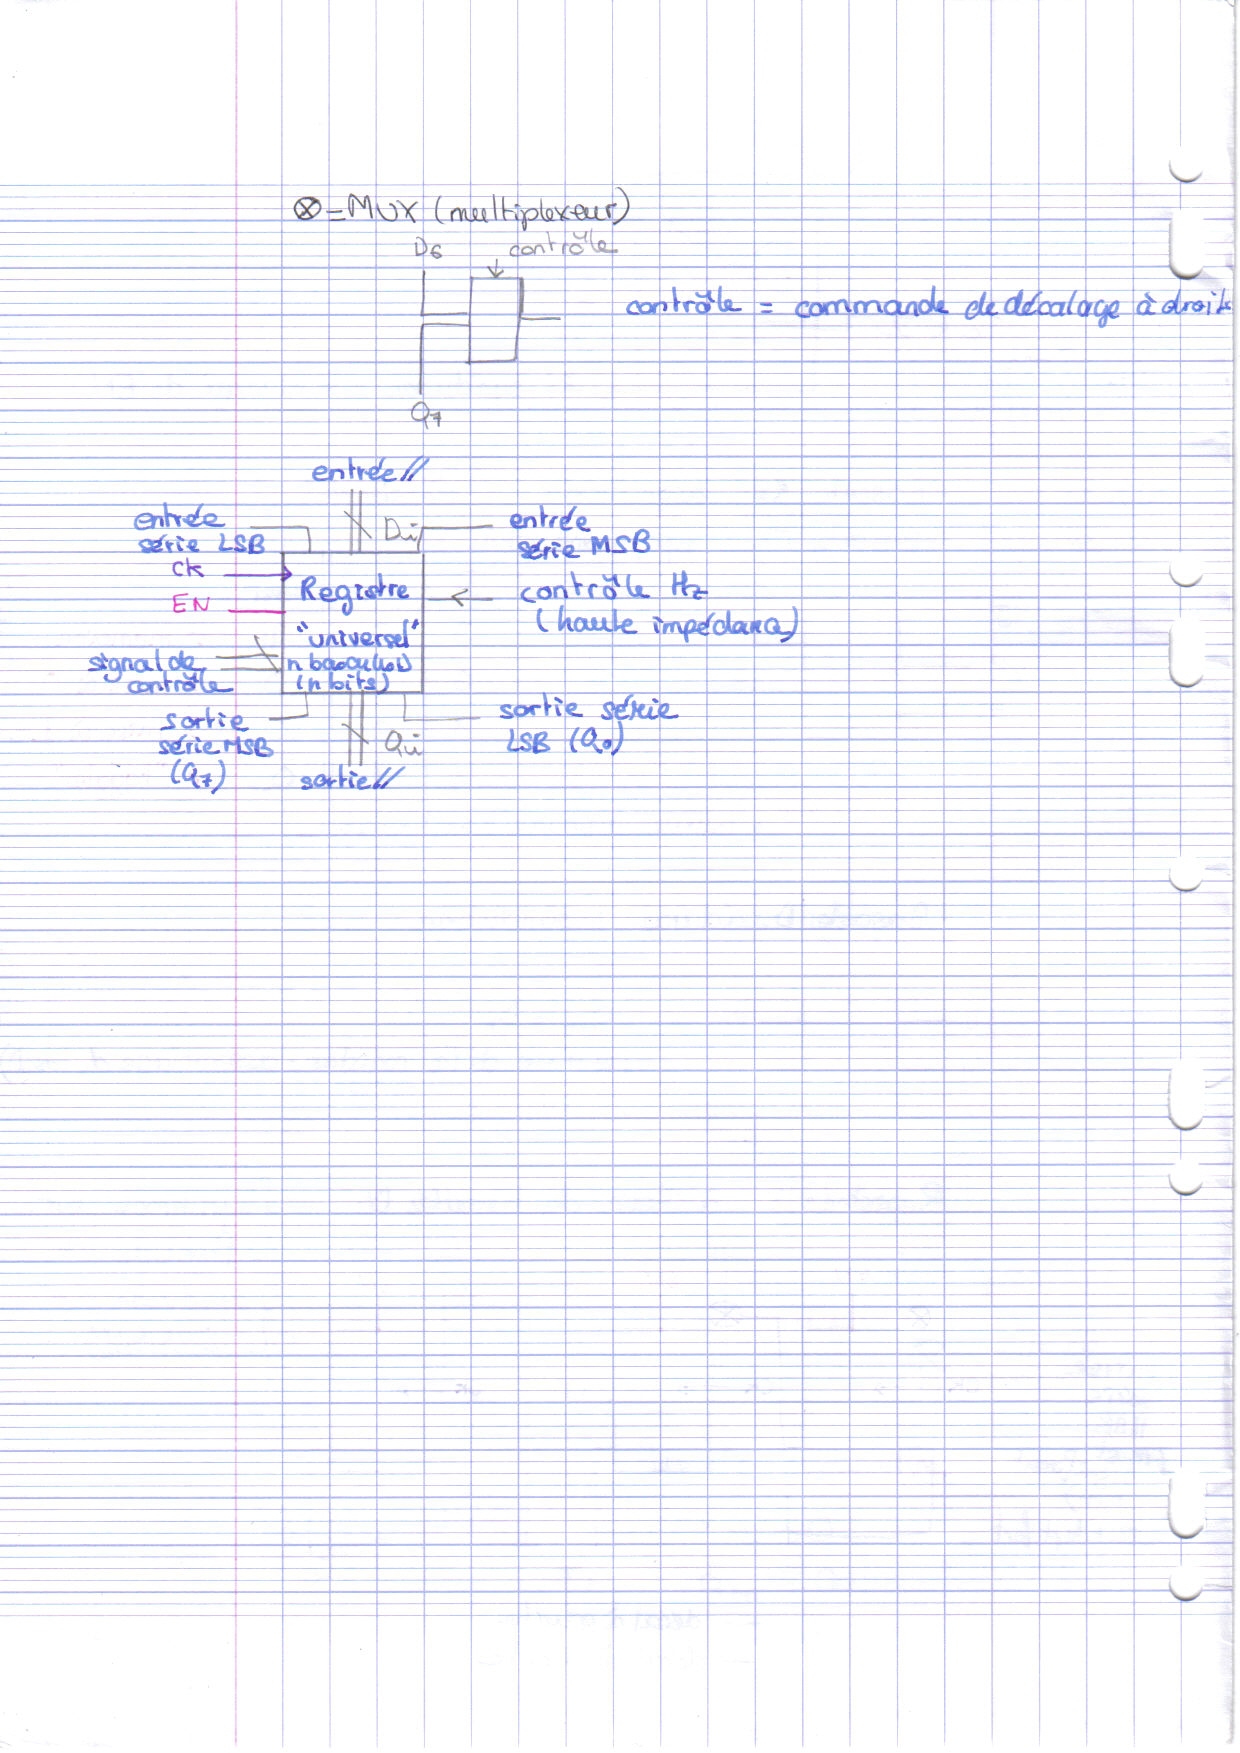 ⊗ = MUX (multiplexeur)
D6 contrôle
contrôle = commande de décalage à droite
Q7
entrée //
entrée
série LSB
Di
entrée
série MSB
CK
EN
Registre
"universel"
n bascules
(n bits)
contrôle Hz
(haute impédance)
signal de
contrôle
sortie
série MSB
(Q7)
Qi
sortie série
LSB (Q0)
sortie //